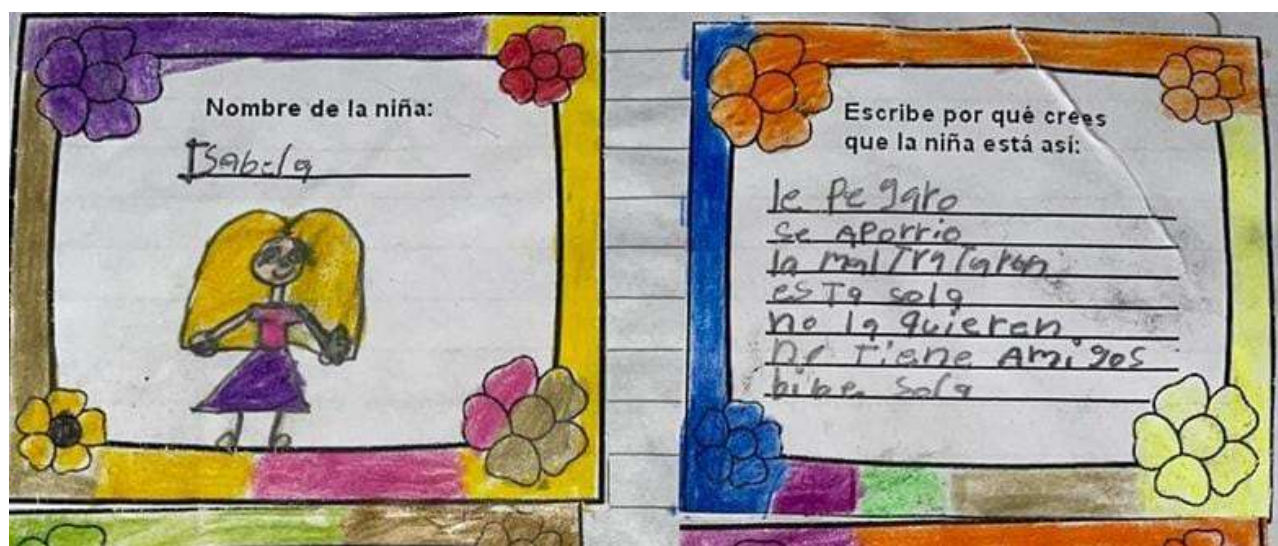 Nombre de la niña:
Isabela
Escribe por qué crees
que la niña está así:
le pegaro
se aporrio
la maltrataron
esta sola
no la quieren
no tiene Amigos
bibe sola